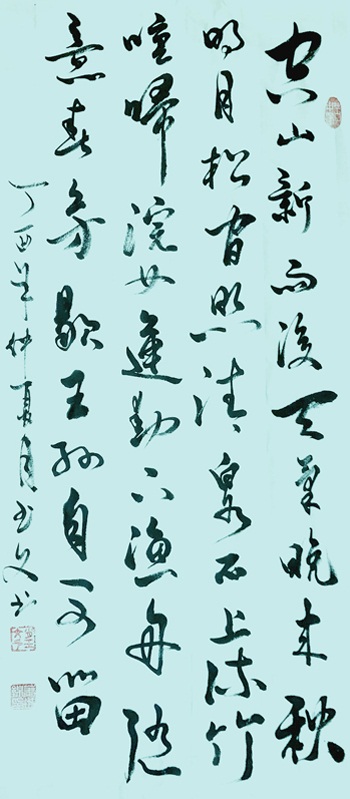 空山新雨後天氣晚来秋
明月松間照清泉石上流竹
喧歸浣女蓮動下漁舟隨
意春芳歇王孫自可留
丁酉年仲夏月书